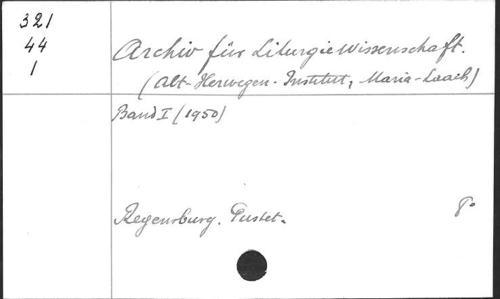 321
44
1
Archiv für Liturgiewissenschaft.
(Abt-Herwegen-Institut, Maria-Laach)
Band I (1950)
Regensburg. Pustet.
8°